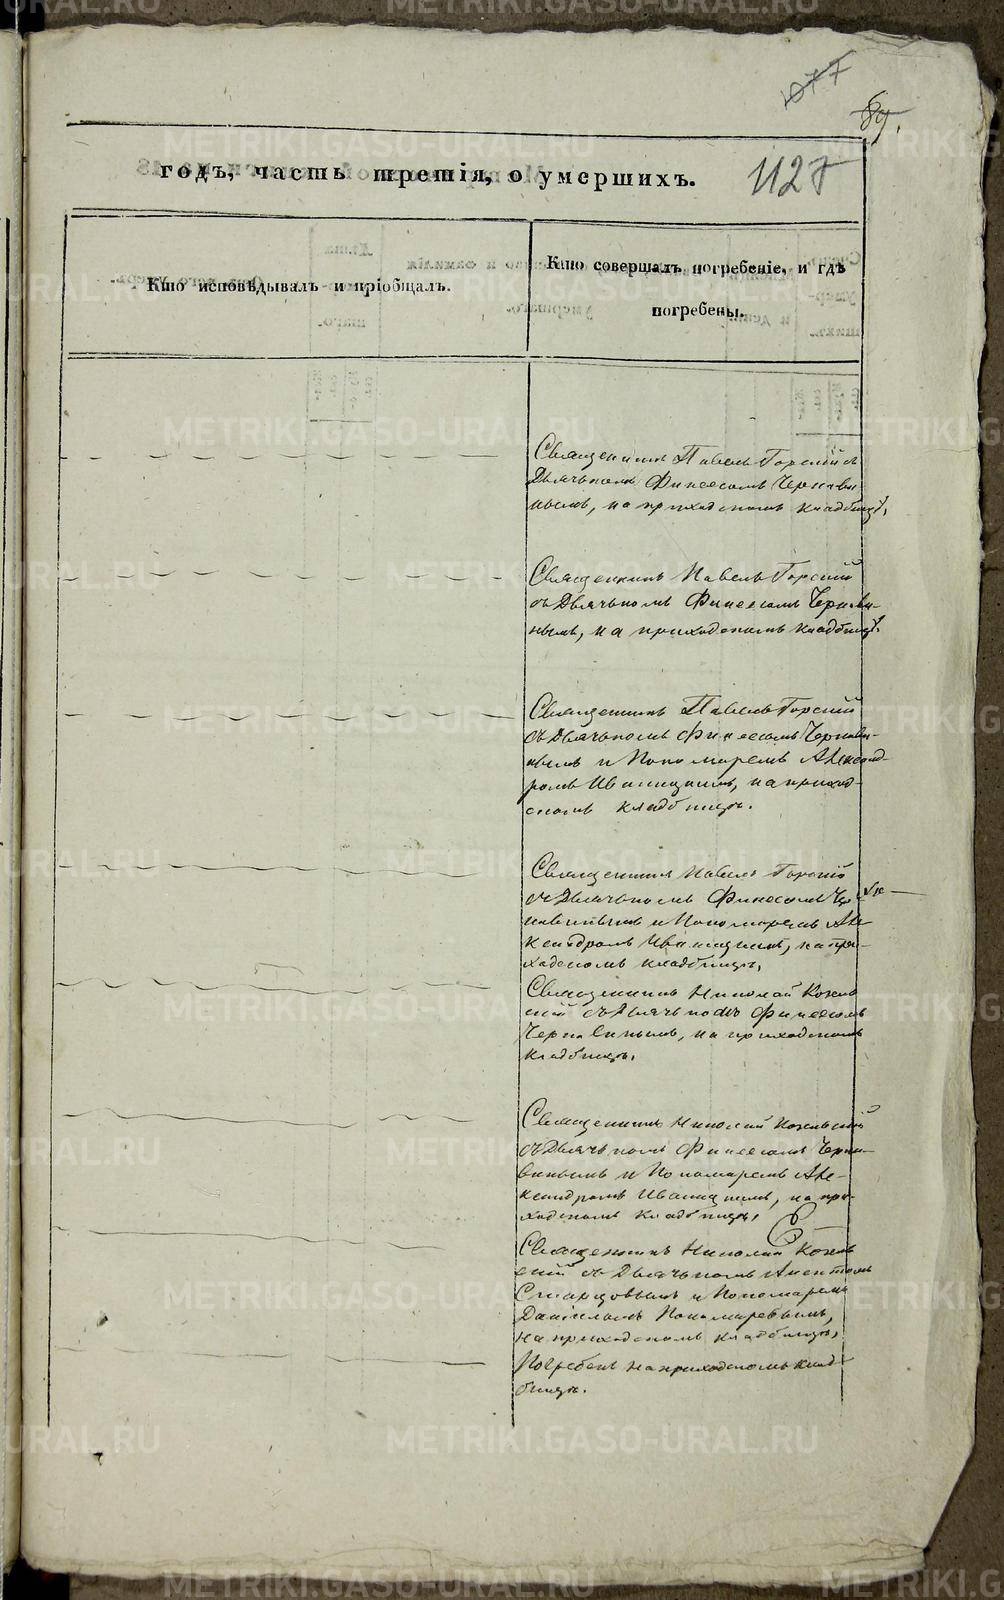 1077
89.
годъ, часть третія, о умершихъ.
1127
Кто исповѣдывалъ и пріобщалъ.
Кто совершалъ погребеніе, и гдѣ
погребены.
Священникъ Павелъ Горскій съ
Дьячькомъ Финеесомъ Чернави
нымъ, на приходскомъ кладбищѣ,
Священникъ Павелъ Горскій
съ Дьячькомъ Финеесомъ Чернави-
нымъ, на приходскомъ кладбищѣ.
Священникъ Павелъ Горскій
съ Дьячькомъ Финеесомъ Чернави-
нымъ и Пономаремъ Александ-
ромъ Иваницкимъ, на приход-
скомъ кладбищѣ.
Священникъ Павелъ Горскій
съ Дьячькомъ Финеесомъ Чер
навинымъ и Пономаремъ Але
ксандромъ Иваницкимъ, на при-
ходскомъ кладбищѣ,
Священникъ Николай Коков
скій съ Дьячькомъ Финеесомъ
Чернавинымъ, на приходскомъ
кладбищѣ,
Священникъ Николай Коковскій
съ Дьячькомъ Финеесомъ Черна-
винымъ и Пономаремъ Але-
ксандромъ Иваницкимъ, на при-
ходскомъ кладбищѣ,
Священникъ Николай Коков
скій съ Дьячькомъ
Старцовымъ и Пономаремъ
Даніиломъ Пономаревымъ,
на приходскомъ кладбищѣ,
Погребенъ на приходскомъ клад-
бищѣ.
METRIKI.GASO-URAL.RU